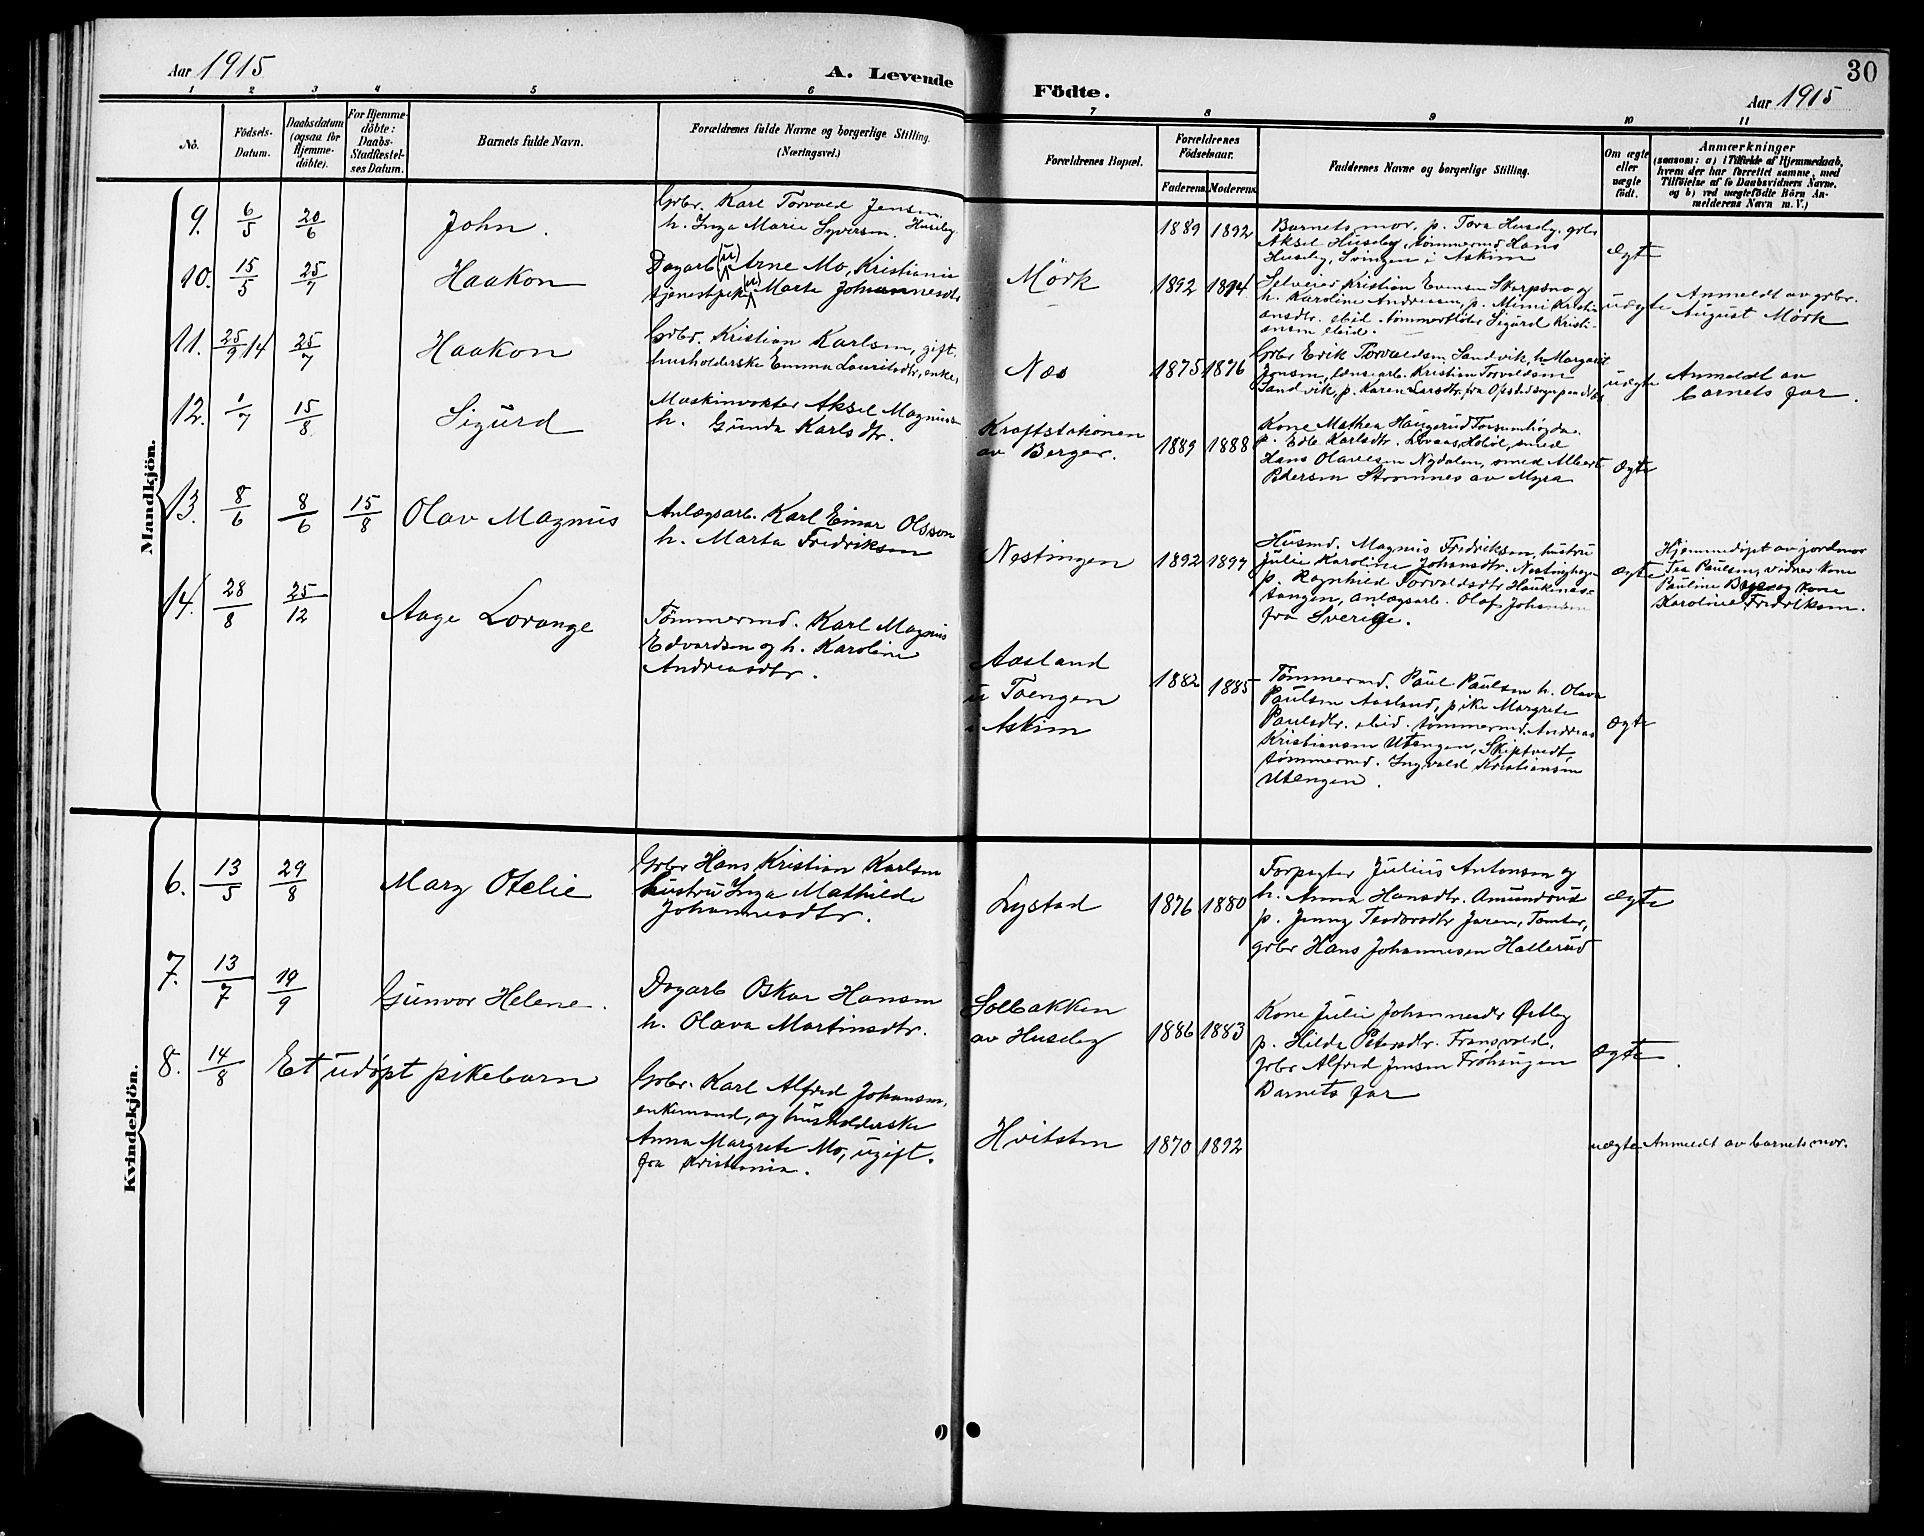 Aar 1915
A. Levende
Födte.
Aar 1915
30
1 2 3 4 5 6 7 8 9 10 11
No.
Födsels-
Datum.
Daabsdatum
(ogsaa for
Hjemme-
döbte).
For Hjemme-
döbte:
Daabs-
Stadfæstel-
ses Datum.
Barnets fulde Navn.
Forældrenes fulde Navne og borgerlige Stilling.
(Næringsvei.)
Forældrenes Bopæl.
Forældrenes
Födselsaar.
Faderens. Moderens.
Faddernes Navne og borgerlige Stilling.
Om ægte
eller
uægte
födt.
Anmærkninger
(saasom: a) i Tilfælde af Hjemmedaab,
hvem der har forrettet samme, med
Tilföielse af to Daabsvidners Navne,
og b) ved uægtefödte Börn An-
melderens Navn m. V.)
Mandkjön.
9. 6/5 20/6 John.
Grbr. Karl Torvald Jensen
h. Inga Marie Syversen. Huseby
1889 1892
Barnets mor, p. Tora Huseby, grbr
Aksel Huseby, tømmermd Hans
Huseby, Svingen i Askim
Ægte
10. 15/5 25/7 Haakon
Dagarb (u) Arne Mo, Kristiania
tjenestpike (u) Marta Johannesdtr
Mörk
1892 1894
Selveier Kristian Evensen Skarpsno og
h. Karoline Andreassen, p. Mimi Kristi-
ansdtr. ibid. tømmerfløter Sigurd Kristi-
ansen ibid.
uægte
Anmeldt av grbr.
August Mörk
11. 25/9 14 25/7 Haakon
Grbr. Kristian Karlsen, gift.
husholderske Emma Lauritsdtr, enke,
Næs
1875 1876
Grbr Erik Torvaldsen Sandvik, h. Margaret
Jensen, løsearb. Kristian Torvaldsen
Sandvik, p. Karen Larsdtr.
uægte
Anmeldt av
barnets far.
12. 1/7 15/8 Sigurd
Maskinvokter Aksel Magnussen
h. Gunda Karlsdtr.
Kraftstationen
av Berger.
1889 1888
Kone Mathea Haugerud
p. Edle Karlsdtr. Hobøl, smed
Hans Olavesen Nydalen, smed Albert
Pedersen Strømnes av Myra
Ægte
13. 8/6 8/6 15/8 Olav Magnus
Anlægsarb. Karl Einar Olsson
h. Marta Fredriksen
Nestingen
1892 1897
Husmd. Magnus Fredriksen, hustru
Julie Karoline Johansdtr. Nestinghagen
p. Ragnhild Torvaldsdtr, Haukenes-
tangen, anlægsarb. Olaf Johansen
fra Sverige.
Ægte
Hjemmedöpt av jordmor
Tea Paulsen, vidner kone
Pauline Berg og kone
Karoline Fredriksen.
14. 28/8 25/12 Aage Lorange
Tömmermd. Karl Magnus
Edvardsen og h. Karoline
Andreasdtr.
Aasland
u Toengen
i Askim
1882 1885
Tömmermd. Paul Paulsen h. Olava
Paulsen Aasland, pike Margrete
Paulsdtr. ibid. tømmermd. Andreas
Kristiansen Utengen, Skiptvedt
tømmermd. Ingvald Kristiansen
Utengen.
Ægte
Kvindekjön.
6. 13/5 29/8 Mary Otelie
Grbr Hans Kristian Karlsen
hustru Inga Mathilde
Johannesdtr.
Lystad
1876 1880
Forpagter Julius Antonsen og
h. Anna Hansdtr. Amundrud
p. Jenny Teodorsdtr Jaren, Tomter,
grbr Hans Johannesen Hallerud
Ægte
7. 13/7 19/9 Gunvor Helene.
Dagarb Oskar Hansen
h. Olava Martinsdtr.
Solbakken
av Huseby
1886 1883
Kone Julie Johannesdtr Østby
p. Hilda Petersdtr. Fransvold,
grbr Alfred Jensen Frøhaugen
Barnets far
Ægte.
8. 14/8 Et udøpt pikebarn
Grbr. Karl Alfred Johansen,
enkemand, og husholderske
Anna Margrete Mo, ugift.
fra Kristiania.
Hvitsten
1870 1892
uægte Anmeldt av barnets mor.